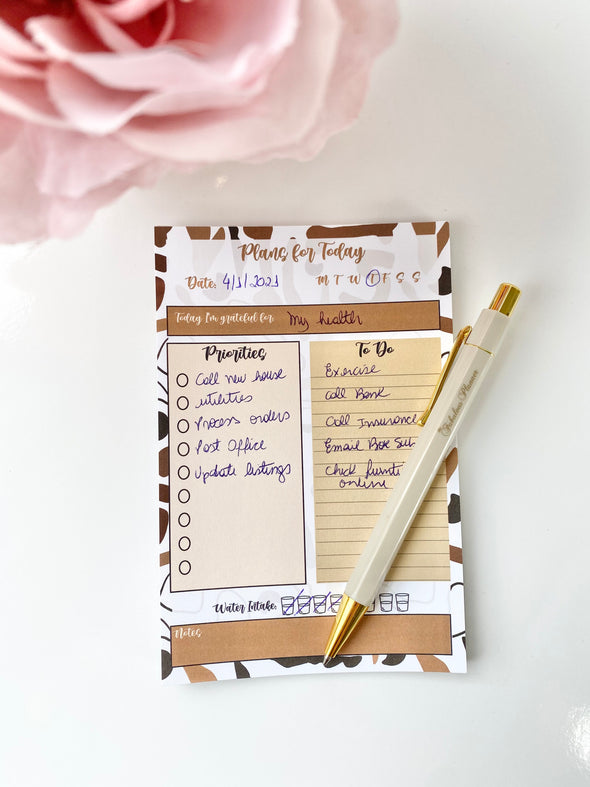 Plans for Today
Date: 4/1/2021 M T W T F S S
Today I'm grateful for: My health
Priorities
Call new house
utilities
Process orders
Post Office
Update listings
To Do
Exercise
Call Bank
Call Insurance
Email Box Sub
Check
online
Water Intake:
Notes
Planner